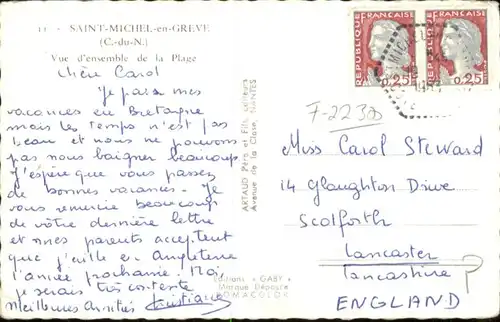 11 - SAINT-MICHEL-en-GREVE
(C.-du-N.)
Vue d'ensemble de la Plage
Chère Carol
Je passe mes
vacances en Bretagne
mais les temps n'est pas
beau et nous ne pouvons
pas nous baigner beaucoup
J'espère que vous passez
de bonnes vacances. Je
vous remercie beaucoup
de vôtre dernière lettre
et mes parents acceptent
que j'aille en Angleterre
l'année prochaine. Moi,
je serais très contente
Meilleures Amitiés Christiane
ARTAUD Père et Fils, Editeurs
Avenue de la Close, NANTES
Editions « GABY »
Marque Déposée
REPUBLIQUE FRANÇAISE
0,25
REPUBLIQUE FRANÇAISE
0,25
ST MICHEL
F-2230
Miss Carol Steward
14 Glaughton Drive
Scotforth
Lancaster
Lancashire ?
ENGLAND